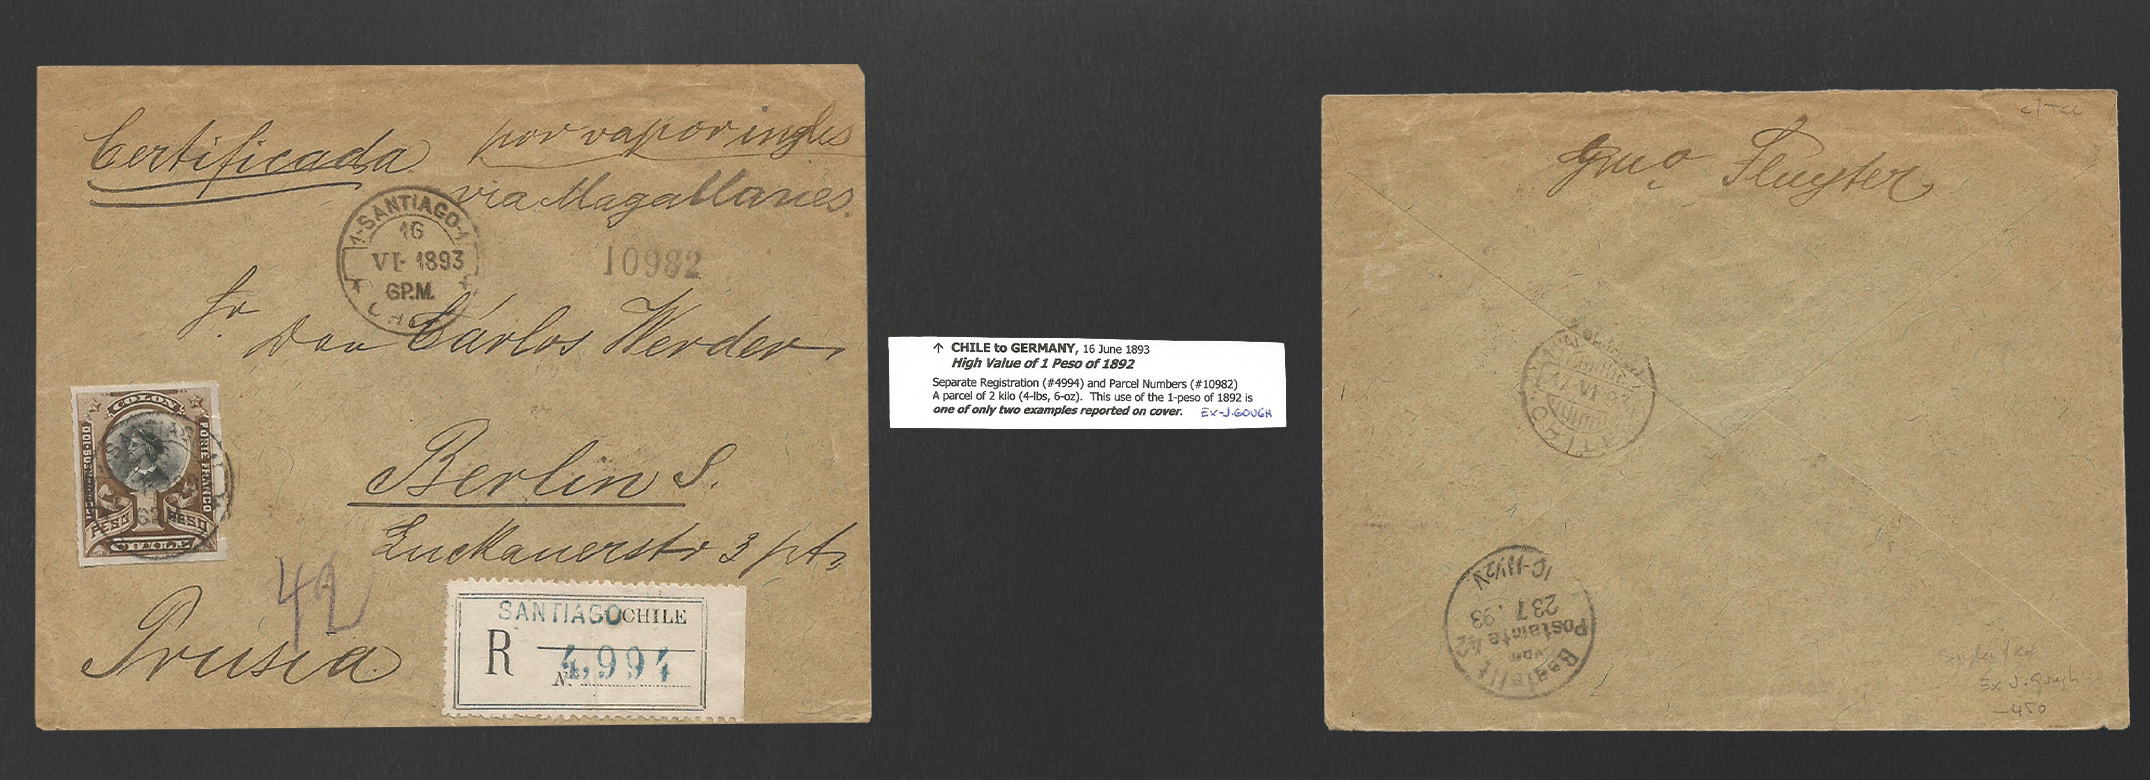 Certificada
por vapor ingles
via Magallanes.
1·SANTIAGO·1
16
VI· 1893
6P.M.
CHILE
10982
Sr
Don Cárlos Werder
Berlin S.
Luckauerstr 3 pt
42
Prusia.
COLON
PORTE FRANCO
1
PESO PESO
CHILE
SANTIAGO CHILE
R
4,994
No
↑ CHILE to GERMANY, 16 June 1893
High Value of 1 Peso of 1892
Separate Registration (#4994) and Parcel Numbers (#10982)
A parcel of 2 kilo (4-lbs, 6-oz). This use of the 1-peso of 1892 is
one of only two examples reported on cover. EX-J.GOUGH
Gmo Fluyter
17 VI 93
Bestellt
vom
Postamte 42
23 7. 93
10-11½V
Ex J. Gough
-450